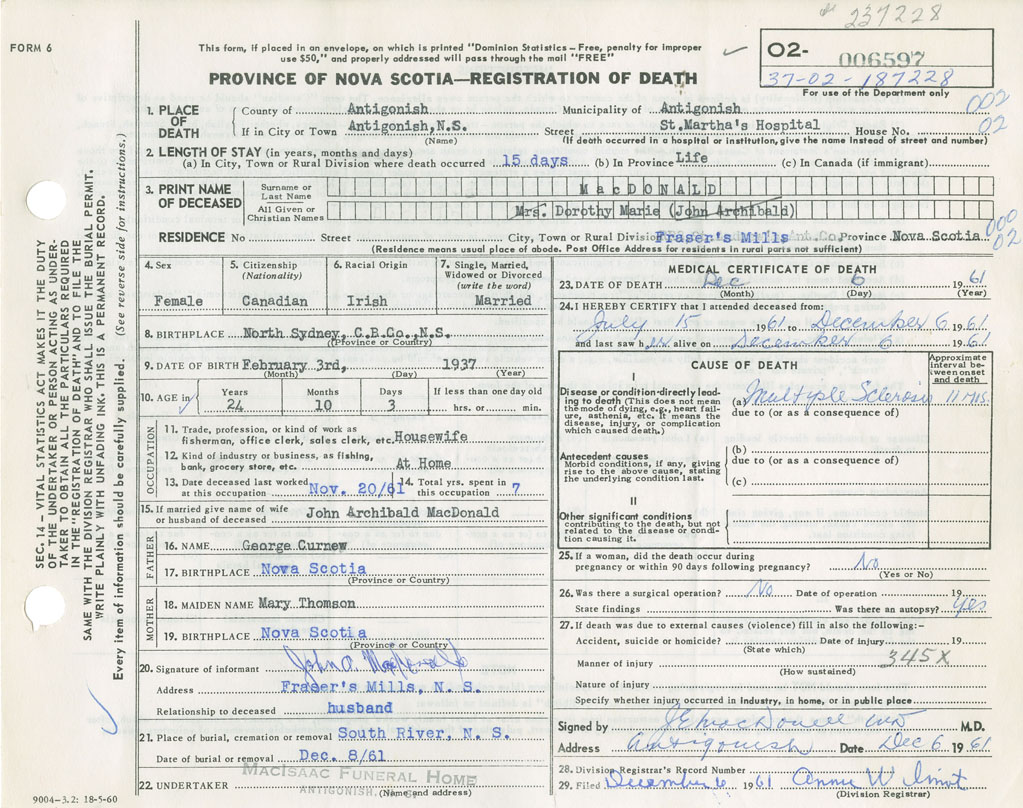 # 237228
FORM 6
This form, if placed in an envelope, on which is printed "Dominion Statistics – Free, penalty for improper
use $50," and properly addressed will pass through the mail "FREE"
O2- 006597
37-02-187228
For use of the Department only
PROVINCE OF NOVA SCOTIA—REGISTRATION OF DEATH
002
02
1. PLACE OF DEATH
County of Antigonish Municipality of Antigonish
If in City or Town Antigonish, N.S. Street St.Martha's Hospital House No.
(Name) (If death occurred in a hospital or institution, give the name instead of street and number)
2. LENGTH OF STAY (in years, months and days)
(a) In City, Town or Rural Division where death occurred 15 days (b) In Province Life (c) In Canada (if immigrant)
3. PRINT NAME OF DECEASED
Surname or Last Name MacDONALD
All Given or Christian Names Mrs. Dorothy Marie (John Archibald)
000
02
RESIDENCE No Street City, Town or Rural Division Fraser's Mills Ant.Co. Province Nova Scotia
(Residence means usual place of abode. Post Office Address for residents in rural parts not sufficient)
4. Sex Female
5. Citizenship (Nationality) Canadian
6. Racial Origin Irish
7. Single, Married, Widowed or Divorced (write the word) Married
8. BIRTHPLACE North Sydney, C.B.Co., N.S.
(Province or Country)
9. DATE OF BIRTH February 3rd, 1937
(Month) (Day) (Year)
10. AGE in Years 24 Months 10 Days 3 If less than one day old hrs. or min.
OCCUPATION
11. Trade, profession, or kind of work as
fisherman, office clerk, sales clerk, etc. Housewife
12. Kind of industry or business, as fishing,
bank, grocery store, etc. At Home
13. Date deceased last worked at this occupation Nov. 20/61
14. Total yrs. spent in this occupation 7
15. If married give name of wife
or husband of deceased John Archibald MacDonald
FATHER
16. NAME George Curnew
17. BIRTHPLACE Nova Scotia
(Province or Country)
MOTHER
18. MAIDEN NAME Mary Thomson
19. BIRTHPLACE Nova Scotia
(Province or Country)
20. Signature of informant John A. MacDonald
Address Fraser's Mills, N. S.
Relationship to deceased husband
21. Place of burial, cremation or removal South River, N. S.
Date of burial or removal Dec. 8/61
MACISAAC FUNERAL HOME
22. UNDERTAKER ANTIGONISH,
(Name and address)
MEDICAL CERTIFICATE OF DEATH
23. DATE OF DEATH Dec 6 1961
(Month) (Day) (Year)
24. I HEREBY CERTIFY that I attended deceased from:
July 15 1961 to December 6 1961
and last saw her alive on December 6 1961
CAUSE OF DEATH
Approximate interval between onset and death
I
Disease or condition directly leading to death (This does not mean the mode of dying, e.g., heart failure, asthenia, etc. It means the disease, injury, or complication which caused death.)
(a) Multiple Sclerosis 11 Mts.
due to (or as a consequence of)
Antecedent causes
Morbid conditions, if any, giving rise to the above cause, stating the underlying condition last.
(b)
due to (or as a consequence of)
(c)
II
Other significant conditions
contributing to the death, but not related to the disease or condition causing it.
25. If a woman, did the death occur during
pregnancy or within 90 days following pregnancy? No
(Yes or No)
26. Was there a surgical operation? No Date of operation 19
State findings Was there an autopsy? Yes
27. If death was due to external causes (violence) fill in also the following:–
Accident, suicide or homicide? Date of injury 19
(State which)
345X
Manner of injury
(How sustained)
Nature of injury
Specify whether injury occurred in industry, in home, or in public place
Signed by J E MacDonell MD M.D.
Address Antigonish Date Dec 6 1961
28. Division Registrar's Record Number
29. Filed December 6 1961 Annie W
(Division Registrar)
SEC. 14 – VITAL STATISTICS ACT MAKES IT THE DUTY
OF THE UNDERTAKER OR PERSON ACTING AS UNDERTAKER
TO OBTAIN ALL THE PARTICULARS REQUIRED
IN THE "REGISTRATION OF DEATH" AND TO FILE THE
SAME WITH THE DIVISION REGISTRAR WHO SHALL ISSUE THE BURIAL PERMIT.
WRITE PLAINLY WITH UNFADING INK. THIS IS A PERMANENT RECORD.
Every item of information should be carefully supplied. (See reverse side for instructions.)
9004–3.2: 18-5-60